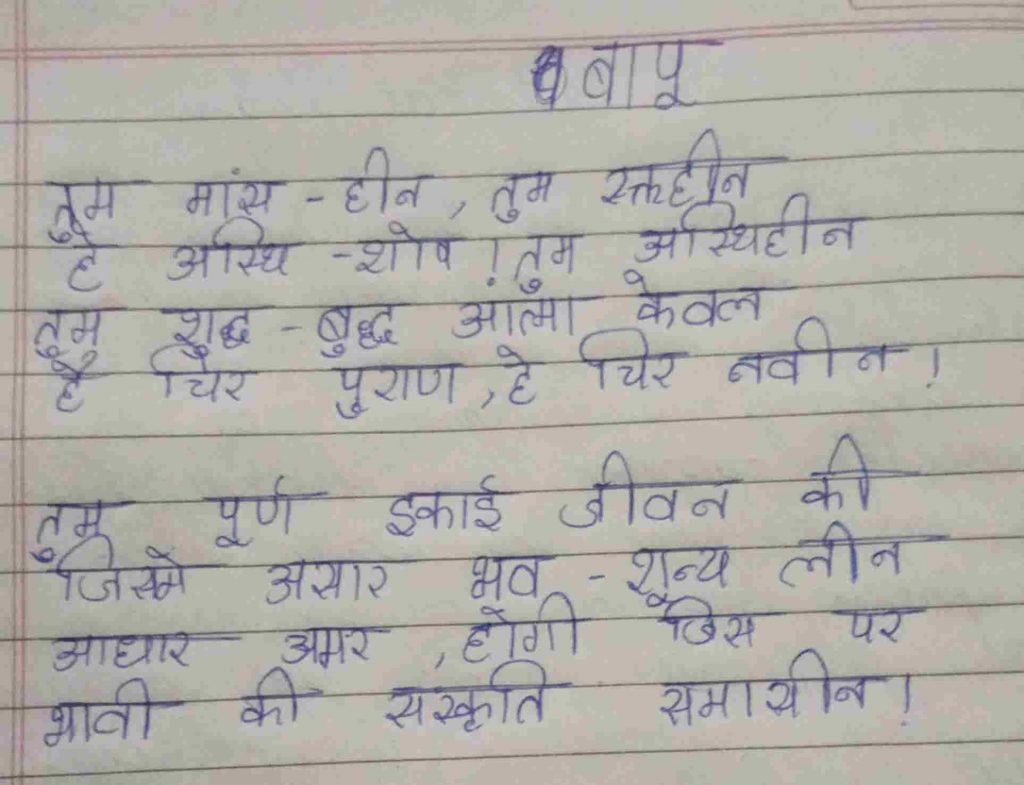 बापू
तुम मांस - हीन , तुम रक्तहीन
हे अस्थि - शोष ! तुम अस्थिहीन
तुम शुद्ध - बुद्ध आत्मा केवल
हे चिर पुराण , हे चिर नवीन !
तुम पूर्ण इकाई जीवन की
जिसमे असार भव - शून्य लीन
आधार अमर , होगी जिस पर
भावी की संस्कृति समासीन !